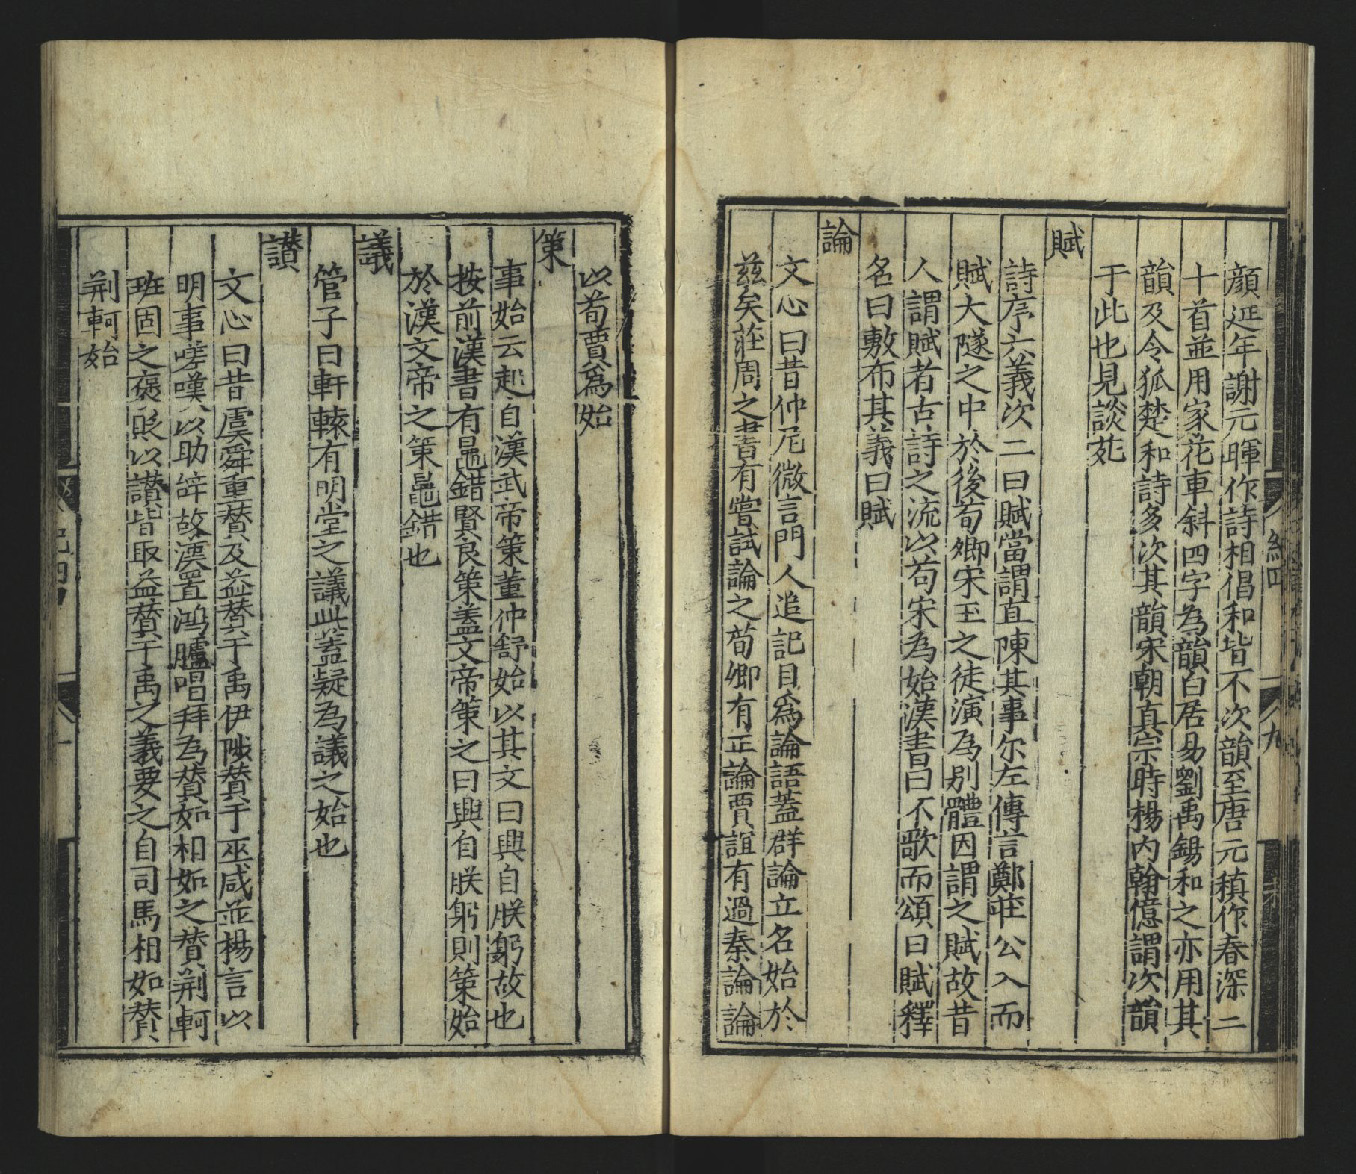 顔延年謝元暉作詩相倡和皆不次韻至唐元稹作春深二
十首並用家花車斜四字為韻白居易劉禹錫和之亦用其
韻及令狐楚和詩多次其韻宋朝真宗時楊内翰億謂次韻
于此也見談苑
賦
詩序六義次二曰賦當謂直陳其事尓左傳言鄭莊公入而
賦大隧之中於後荀卿宋玉之徒演為別體因謂之賦故昔
人謂賦者古詩之流以荀宋為始漢書曰不歌而頌曰賦釋
名曰敷布其義曰賦
論
文心曰昔仲尼微言門人追記目爲論語蓋群論立名始於
兹矣莊周之書有嘗試論之荀卿有正論賈誼有過秦論論
以荀賈爲始
策
事始云起自漢武帝策董仲舒始以其文曰興自朕躬故也
按前漢書有鼂錯賢良策蓋文帝策之曰興自朕躬則策始
於漢文帝之策鼂錯也
議
管子曰軒轅有明堂之議此蓋疑為議之始也
讃
文心曰昔虞舜重賛及益賛于禹伊陟賛于巫咸並揚言以
明事嗟嘆以助辞故漢置鴻臚唱拜為賛如相如之賛荆軻
班固之褒貶以讃皆取益賛于禹之義要之自司馬相如賛
荆軻始
紀四
九
紀四
十